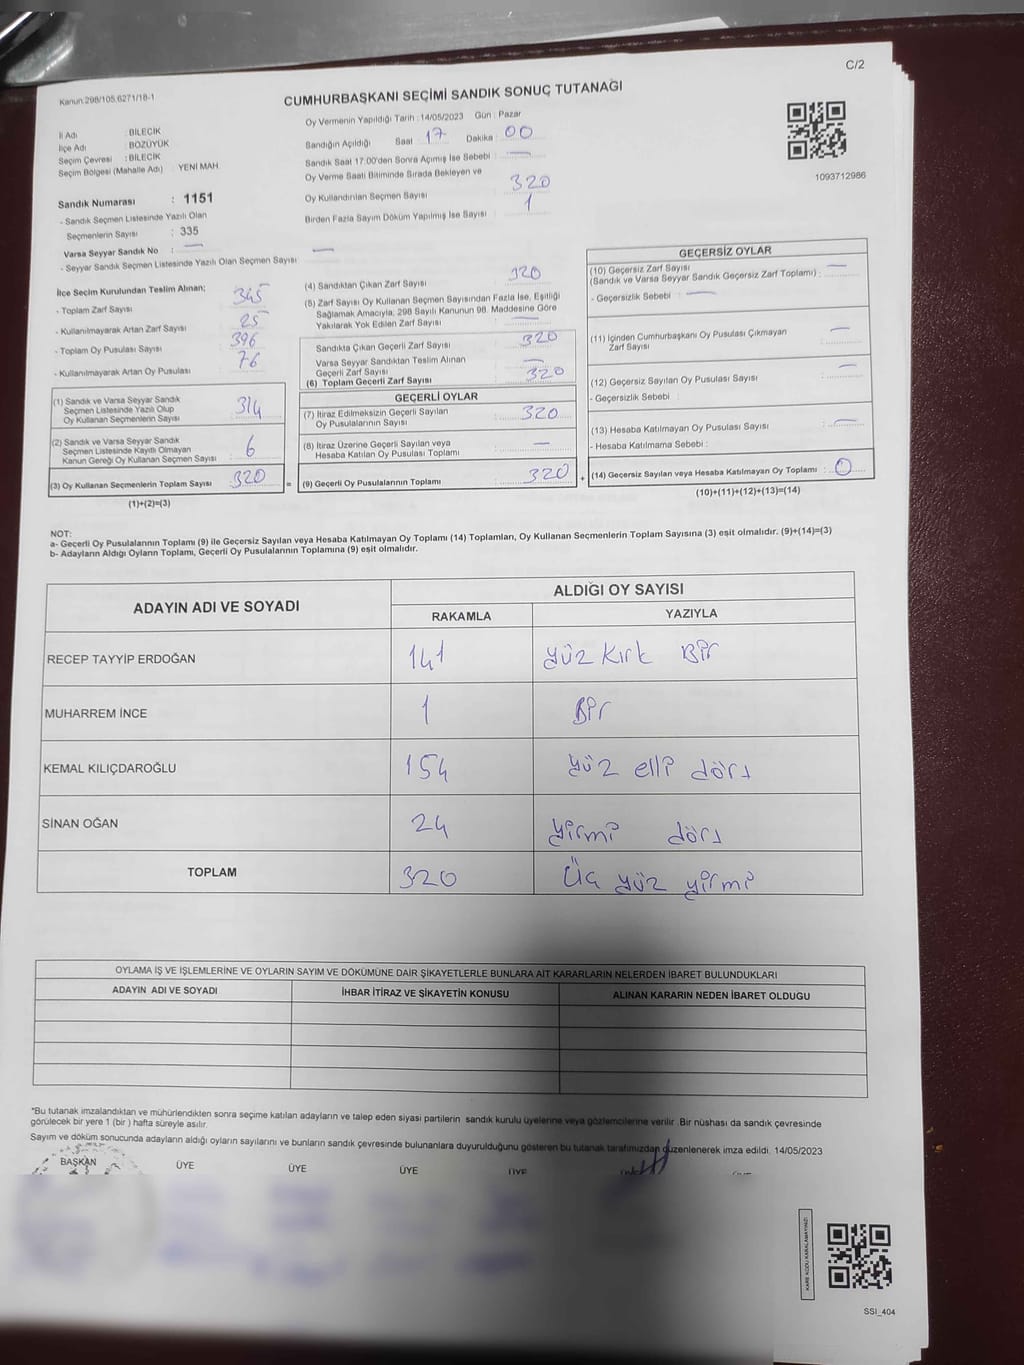 C/2
Kanun:298/105,6271/18-1
CUMHURBAŞKANI SEÇİMİ SANDIK SONUÇ TUTANAĞI
İl Adı : BİLECİK
İlçe Adı : BOZÜYÜK
Seçim Çevresi : BİLECİK
Seçim Bölgesi (Mahalle Adı) : YENİ MAH.
Sandık Numarası : 1151
- Sandık Seçmen Listesinde Yazılı Olan
Seçmenlerin Sayısı : 335
Varsa Seyyar Sandık No : —
- Seyyar Sandık Seçmen Listesinde Yazılı Olan Seçmen Sayısı —
Oy Vermenin Yapıldığı Tarih : 14/05/2023 Gün : Pazar
Sandığın Açıldığı Saat 17 Dakika 00
Sandık Saat 17:00'den Sonra Açımış İse Sebebi : —
Oy Verme Saati Bitiminde Sırada Bekleyen ve
Oy Kullandırılan Seçmen Sayısı 320
Birden Fazla Sayım Döküm Yapılmış İse Sayısı 1
1093712986
İlçe Seçim Kurulundan Teslim Alınan;
- Toplam Zarf Sayısı 345
- Kullanılmayarak Artan Zarf Sayısı 25
- Toplam Oy Pusulası Sayısı 396
- Kullanılmayarak Artan Oy Pusulası 76
(1) Sandık ve Varsa Seyyar Sandık
Seçmen Listesinde Yazılı Olup
Oy Kullanan Seçmenlerin Sayısı 314
(2) Sandık ve Varsa Seyyar Sandık
Seçmen Listesinde Kayıtlı Olmayan
Kanun Gereği Oy Kullanan Seçmen Sayısı 6
(3) Oy Kullanan Seçmenlerin Toplam Sayısı 320 =
(1)+(2)=(3)
(4) Sandıktan Çıkan Zarf Sayısı 320
(5) Zarf Sayısı Oy Kullanan Seçmen Sayısından Fazla İse, Eşitliği
Sağlamak Amacıyla, 298 Sayılı Kanunun 98. Maddesine Göre
Yakılarak Yok Edilen Zarf Sayısı —
Sandıkta Çıkan Geçerli Zarf Sayısı 320
Varsa Seyyar Sandıktan Teslim Alınan
Geçerli Zarf Sayısı —
(6) Toplam Geçerli Zarf Sayısı 320
GEÇERLİ OYLAR
(7) İtiraz Edilmeksizin Geçerli Sayılan
Oy Pusulalarının Sayısı : 320
(8) İtiraz Üzerine Geçerli Sayılan veya
Hesaba Katılan Oy Pusulası Toplamı : —
(9) Geçerli Oy Pusulalarının Toplamı : 320 +
GEÇERSİZ OYLAR
(10) Geçersiz Zarf Sayısı
(Sandık ve Varsa Seyyar Sandık Geçersiz Zarf Toplamı) : —
- Geçersizlik Sebebi : —
(11) İçinden Cumhurbaşkanı Oy Pusulası Çıkmayan
Zarf Sayısı : —
(12) Geçersiz Sayılan Oy Pusulası Sayısı : —
- Geçersizlik Sebebi :
(13) Hesaba Katılmayan Oy Pusulası Sayısı : —
- Hesaba Katılmama Sebebi :
(14) Gecersiz Sayılan veya Hesaba Katılmayan Oy Toplamı : 0
(10)+(11)+(12)+(13)=(14)
NOT:
a- Geçerli Oy Pusulalarının Toplamı (9) ile Geçersiz Sayılan veya Hesaba Katılmayan Oy Toplamı (14) Toplamları, Oy Kullanan Seçmenlerin Toplam Sayısına (3) eşit olmalıdır. (9)+(14)=(3)
b- Adayların Aldığı Oyların Toplamı, Geçerli Oy Pusulalarının Toplamına (9) eşit olmalıdır.
ADAYIN ADI VE SOYADI
ALDIĞI OY SAYISI
RAKAMLA YAZIYLA
RECEP TAYYİP ERDOĞAN 141 yüz kırk Bir
MUHARREM İNCE 1 Bir
KEMAL KILIÇDAROĞLU 154 yüz elli dört
SİNAN OĞAN 24 yirmi dört
TOPLAM 320 üç yüz yirmi
OYLAMA İŞ VE İŞLEMLERİNE VE OYLARIN SAYIM VE DÖKÜMÜNE DAİR ŞİKAYETLERLE BUNLARA AİT KARARLARIN NELERDEN İBARET BULUNDUKLARI
ADAYIN ADI VE SOYADI İHBAR İTİRAZ VE ŞİKAYETİN KONUSU ALINAN KARARIN NEDEN İBARET OLDUGU
*Bu tutanak imzalandıktan ve mühürlendikten sonra seçime katılan adayların ve talep eden siyasi partilerin sandık kurulu üyelerine veya gözlemcilerine verilir .Bir nüshası da sandık çevresinde
görülecek bir yere 1 (bir ) hafta süreyle asılır.
Sayım ve döküm sonucunda adayların aldığı oyların sayılarını ve bunların sandık çevresinde bulunanlara duyurulduğunu gösteren bu tutanak tarafımızdan düzenlenerek imza edildi. 14/05/2023
BAŞKAN ÜYE ÜYE ÜYE ÜYE
KARE KODU KARALAMAYINIZ!
SSI_404